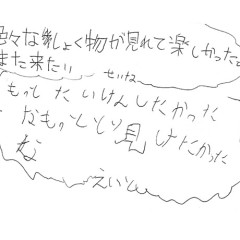 色々なしょく物が見れて楽しかった。
また来たい
せいね
もっと たいけんしたかった
なもっといり見けたかった
な
えいと